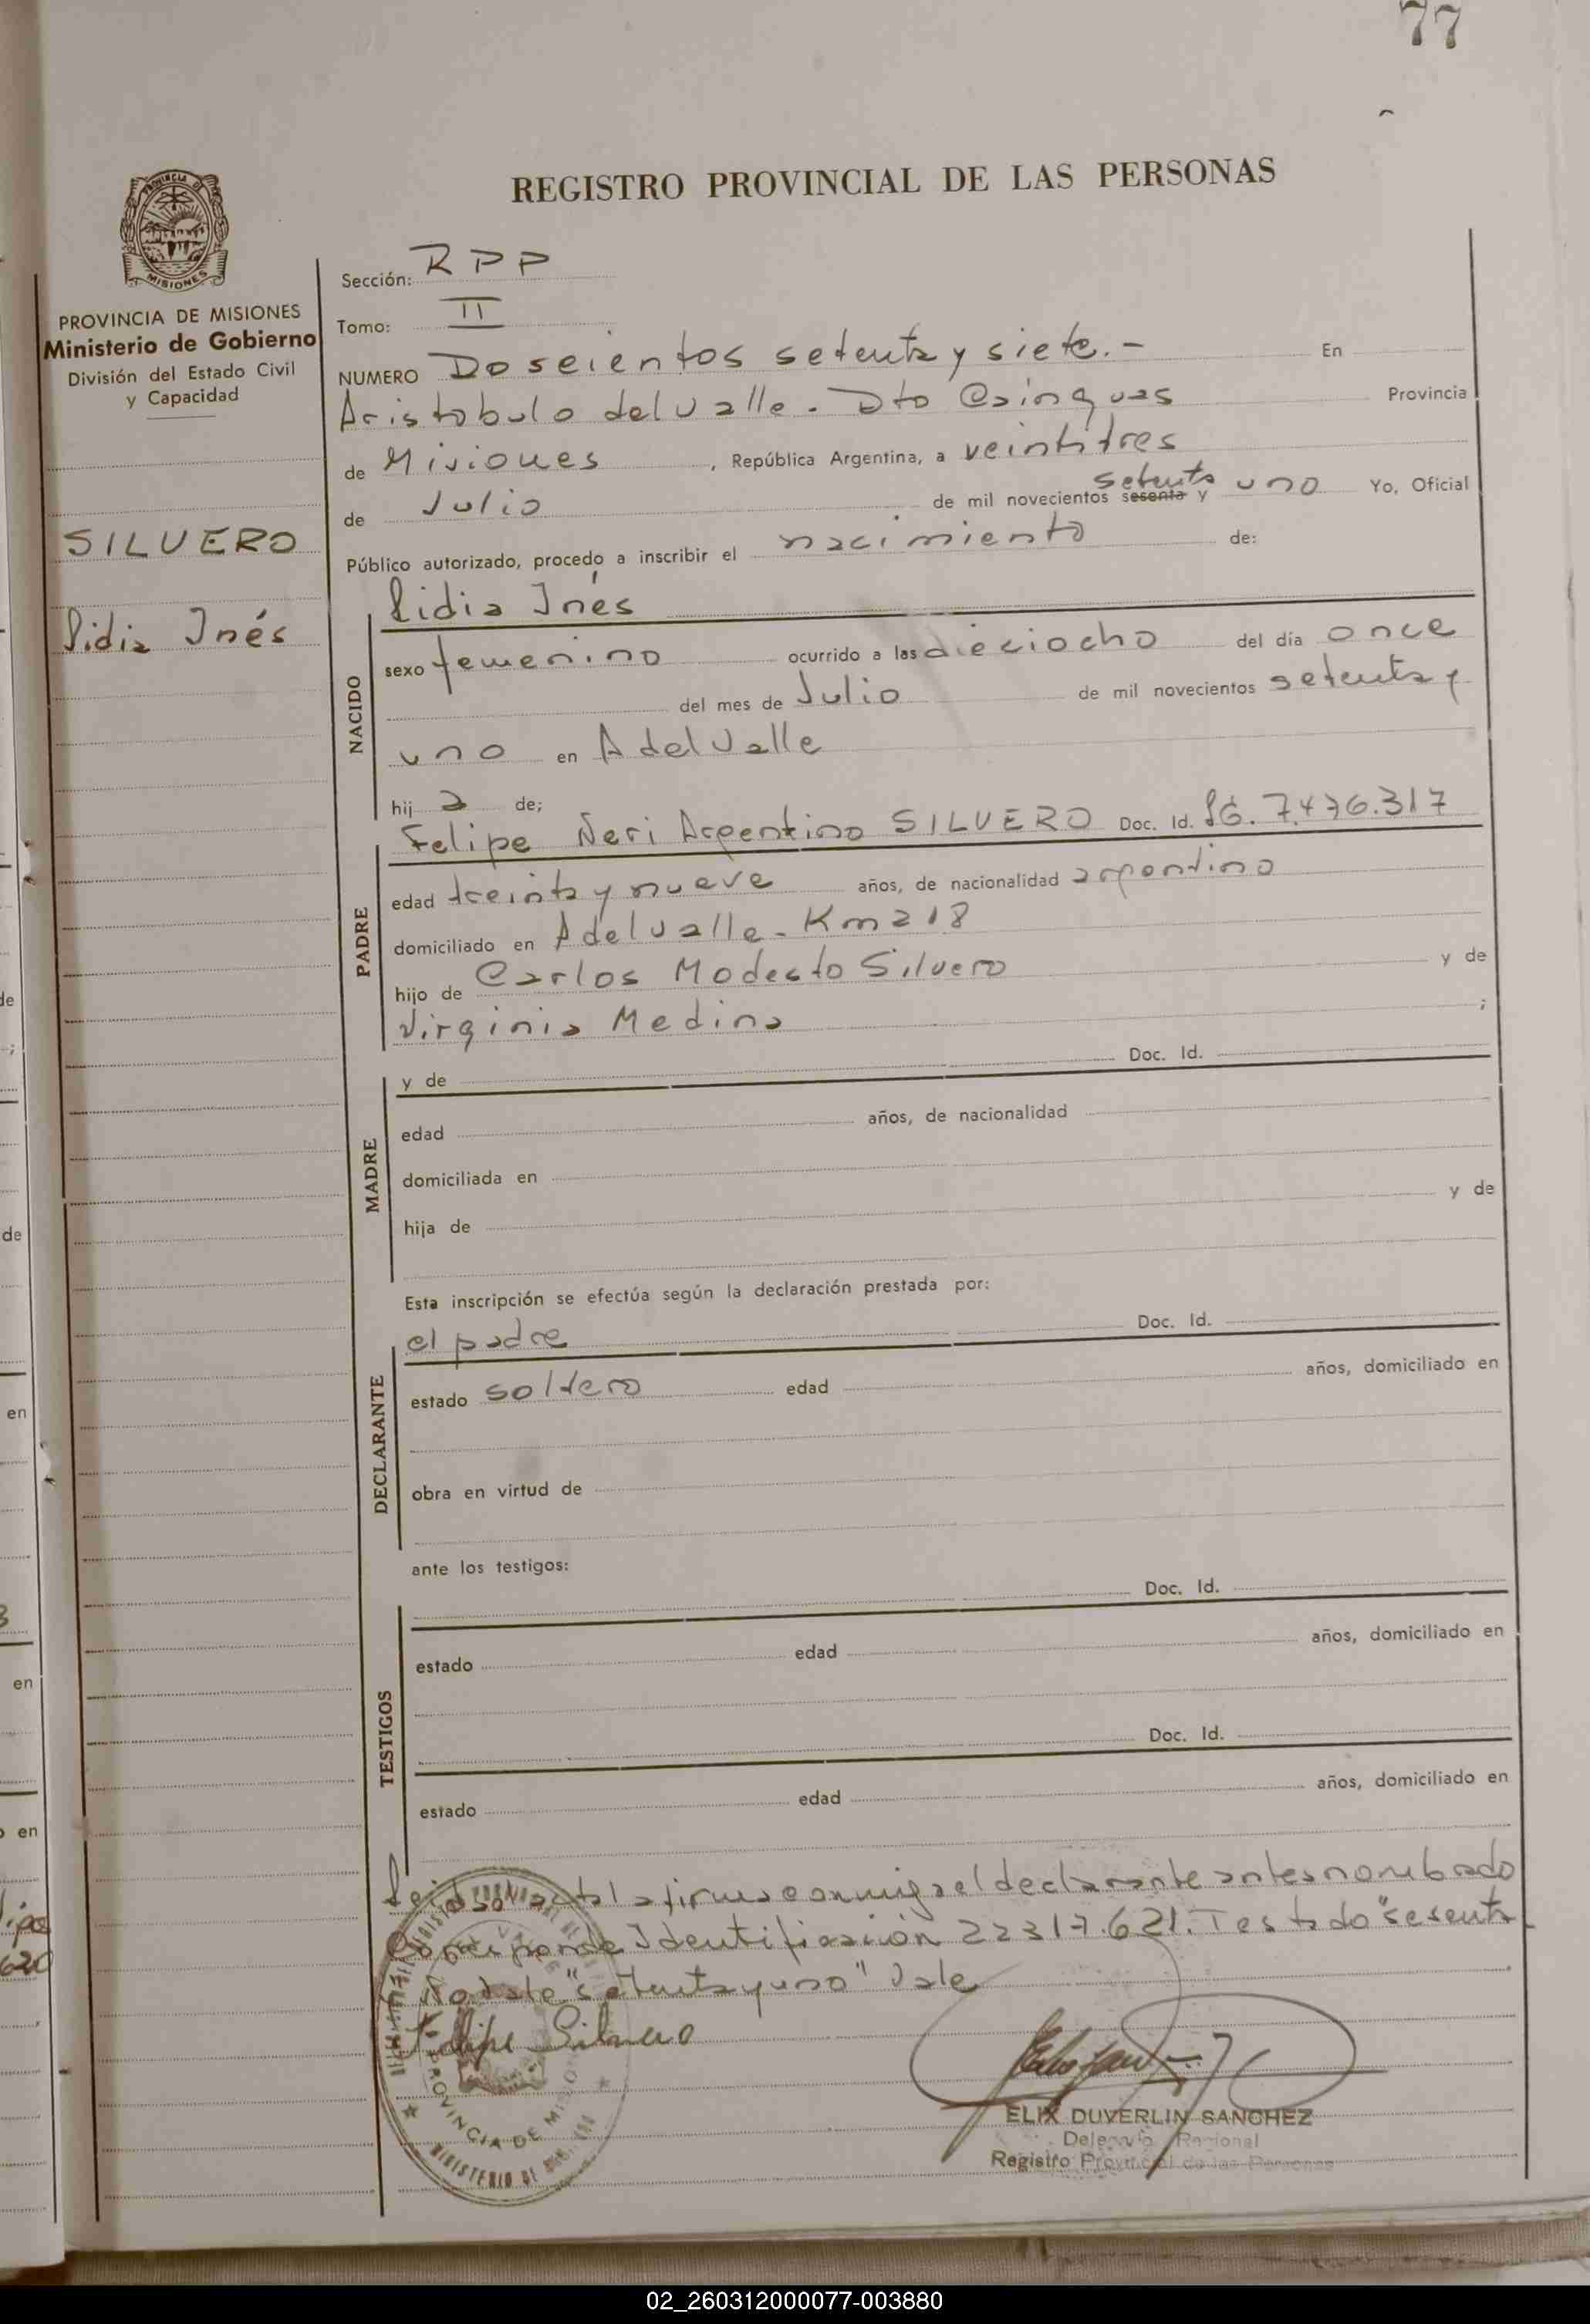 77
REGISTRO PROVINCIAL DE LAS PERSONAS
PROVINCIA DE MISIONES
Ministerio de Gobierno
División del Estado Civil
y Capacidad
SILVERO
Lidia Inés
Sección: RPP
Tomo: II
NUMERO Doscientos setenta y siete.- En
Aristobulo del Valle. Dto Cainguas Provincia
de Misiones, República Argentina, a veintitres
setenta
de Julio de mil novecientos sesenta y uno Yo, Oficial
Público autorizado, procedo a inscribir el nacimiento de:
Lidia Inés
NACIDO
sexo femenino ocurrido a las dieciocho del día once
del mes de Julio de mil novecientos setenta y
uno en A del Valle
hij a de;
Felipe Neri Argentino SILVERO Doc. Id. LE. 7.476.317
PADRE
edad treinta y nueve años, de nacionalidad argentino
domiciliado en A del Valle - Km 218
hijo de Carlos Modesto Silvero y de
Virginia Medina ;
MADRE
y de Doc. Id.
edad años, de nacionalidad
domiciliada en
hija de y de
Esta inscripción se efectúa según la declaración prestada por:
el padre Doc. Id.
DECLARANTE
estado soltero edad años, domiciliado en
obra en virtud de
ante los testigos:
Doc. Id.
TESTIGOS
estado edad años, domiciliado en
Doc. Id.
estado edad años, domiciliado en
Leida el acta la firma conmigo el declarante antes nombrado
Corresponde Identificación 22317.621. Testado "sesenta
"setenta y uno" Vale
Felipe Silvero
PROVINCIA DE MISIONES
MINISTERIO DE
ELIX DUVERLIN SANCHEZ
Delegado Regional
Registro Provincial de las Personas
02_260312000077-003880